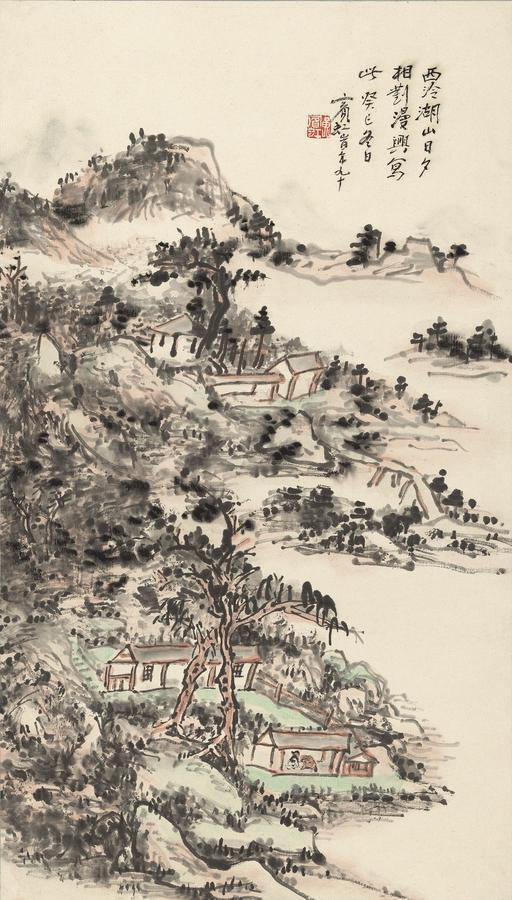 西泠湖山日夕
相對漫興寫
此癸巳冬日
賓虹旹年九十
黃賓虹